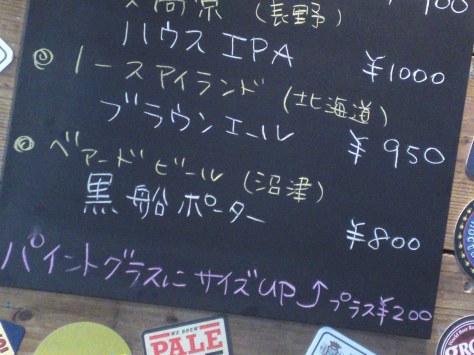 高原 (長野)
ハウス IPA ¥1000
◎ ノースアイランド (北海道)
ブラウンエール ¥950
◎ ベアードビール (沼津)
黒船ポーター ¥800
パイントグラスにサイズUP↑プラス¥200
WE BREW
PALE